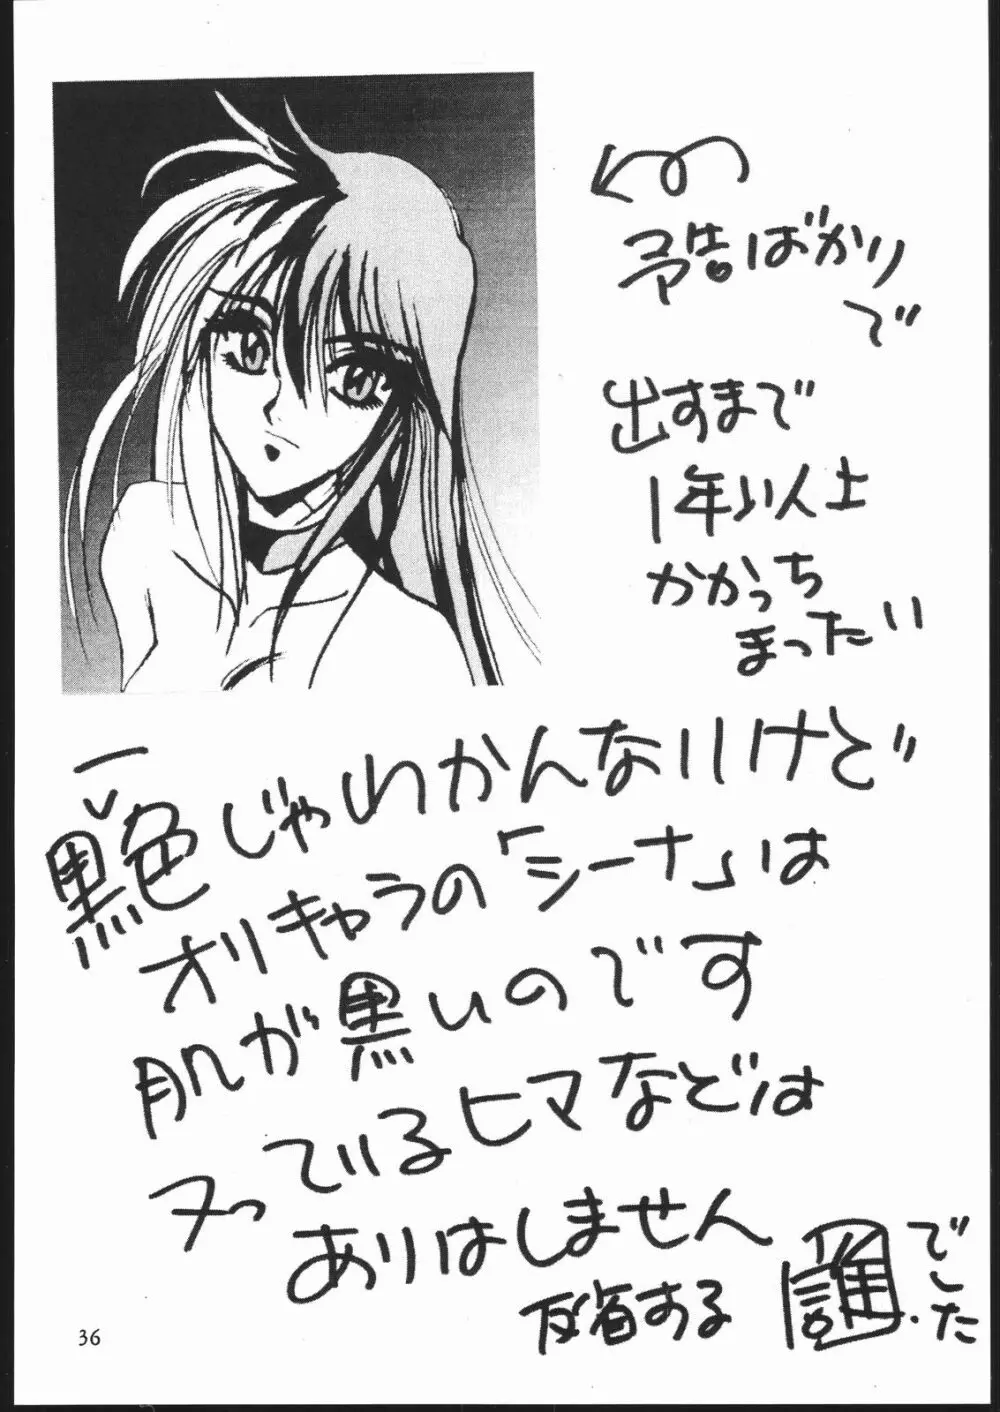 予告ばかり
で
出すまで
1年以上
かかっち
まったい
黒色じゃわかんないけど
オリキャラの「シーナ」は
肌が黒いのです
ヌっているヒマなどは
ありはしません
反省する
でした
36